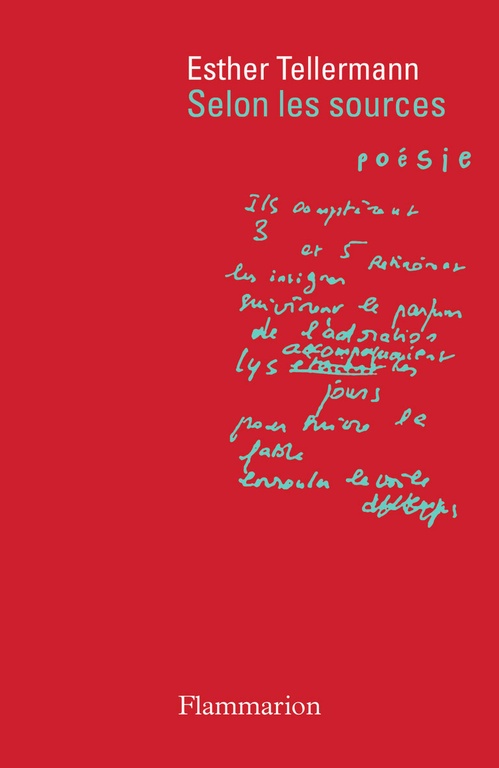 Esther Tellermann
Selon les sources
poésie
Ils comptèrent
3
et 5 retirèrent
les insignes
suivirent le parfum
de l'adoration
accompagnaient
lys les
jours
pour suivre la
fable
le voile
Flammarion